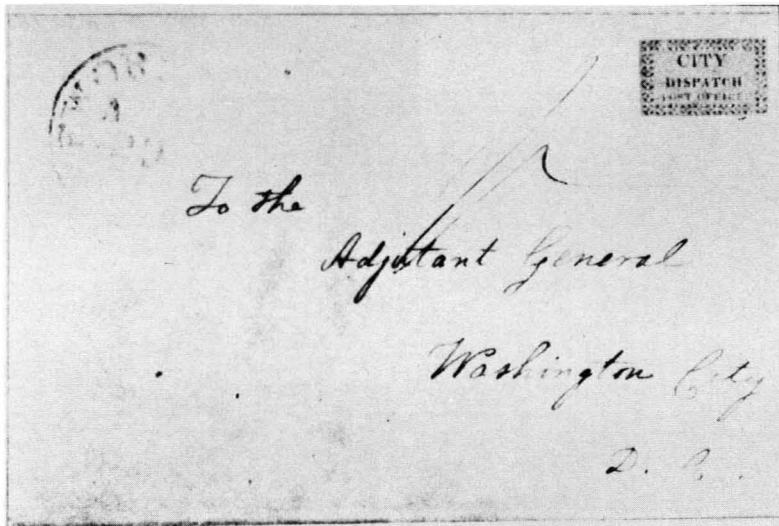 CITY
DISPATCH
POST OFFICE
To the
Adjutant General
Washington City
D. C.